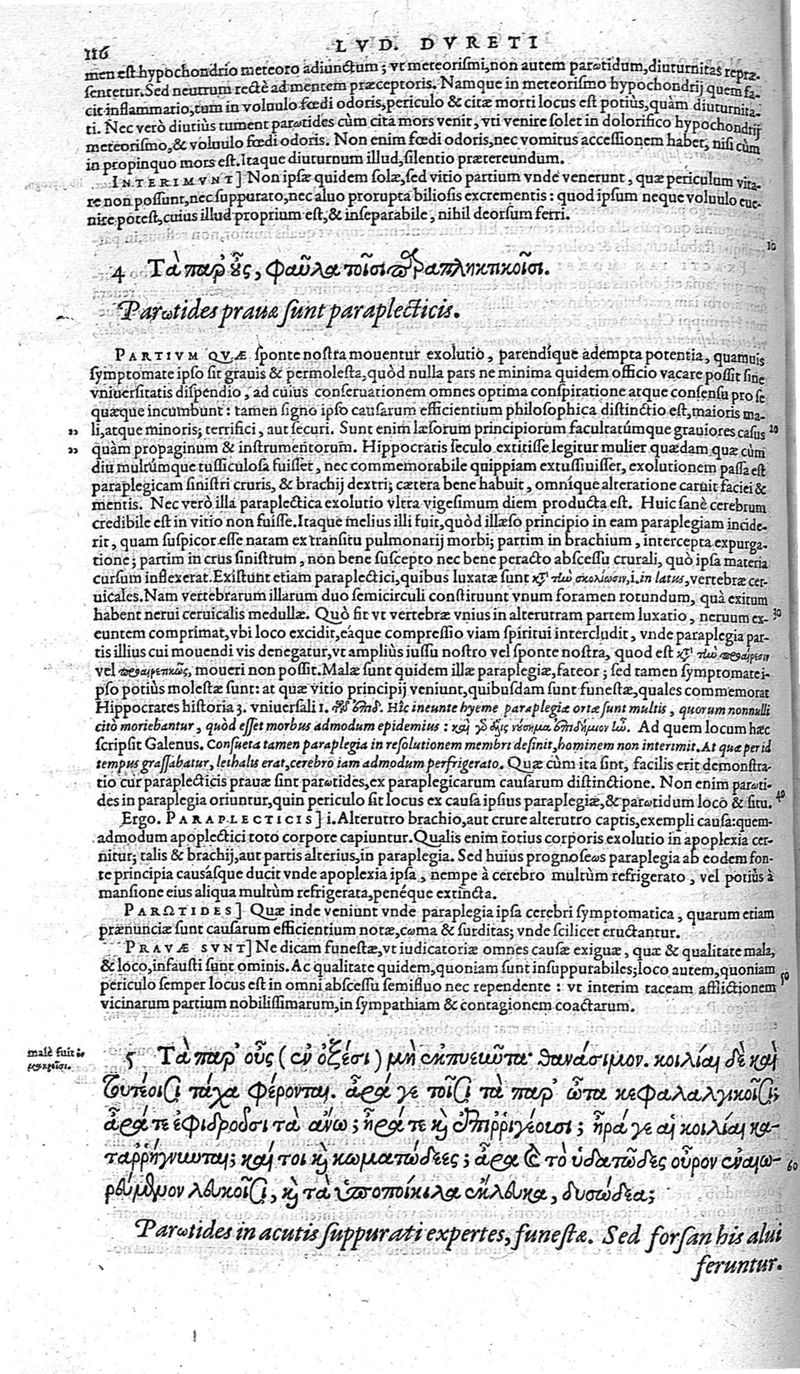 116
LVD. DVRETI
men est hypochondrio meteoro adiunctum; vt meteorismi, non autem parωtidum, diuturnitas repræ-
sentetur. Sed neutrum rectè ad mentem præceptoris. Namque in meteorismo hypochondrij quem fa-
cit inflammatio, tum in voluulo fœdi odoris, periculo & citæ morti locus est potiùs, quàm diuturnita-
ti. Nec verò diutiùs tument parωtides cùm cita mors venit, vti venire solet in dolorifico hypochondrij
meteorismo, & voluulo fœdi odoris. Non enim fœdi odoris, nec vomitus accessionem habet, nisi cùm
in propinquo mors est. Itaque diuturnum illud, silentio prætereundum.
INTERIMVNT] Non ipsæ quidem solæ, sed vitio partium vnde venerunt, quæ periculum vita-
re non possunt, nec suppurato, nec aluo prorupta biliosis excrementis: quod ipsum neque voluulo eue-
nire potest, cuius illud proprium est, & inseparabile, nihil deorsum ferri.
10
4 Τὰ παρ' οὖς, φαῦλα τοῖσι παραπληκτικοῖσι.
Parωtides prauæ sunt paraplecticis.
PARTIVM QVÆ sponte nostra mouentur exolutio, parendíque adempta potentia, quamuis
symptomate ipso sit grauis & permolesta, quòd nulla pars ne minima quidem officio vacare possit sine
vniuersitatis dispendio, ad cuius conseruationem omnes optima conspiratione atque consensu pro se
quæque incumbunt: tamen signo ipso causarum efficientium philosophica distinctio est, maioris ma-
„ li, atque minoris; terrifici, aut securi. Sunt enim læsorum principiorum facultatúmque grauiores casus 20
„ quàm propaginum & instrumentorum. Hippocratis seculo extitisse legitur mulier quædam quæ cùm
diu multúmque tussiculosa fuisset, nec commemorabile quippiam extussiuisset, exolutionem passa est
paraplegicam sinistri cruris, & brachij dextri; cætera bene habuit, omníque alteratione caruit faciei &
mentis. Nec verò illa paraplectica exolutio vltra vigesimum diem producta est. Huic sanè cerebrum
credibile est in vitio non fuisse. Itaque melius illi fuit, quòd illæso principio in eam paraplegiam incide-
rit, quam suspicor esse natam ex transitu pulmonarij morbi; partim in brachium, intercepta expurga-
tione; partim in crus sinistrum, non bene suscepto nec bene peracto abscessu crurali, quò ipsa materia
cursum inflexerat. Existunt etiam paraplectici, quibus luxatæ sunt κατὰ τὴν σκολίωσιν, i. in latus, vertebræ cer-
uicales. Nam vertebrarum illarum duo semicirculi constituunt vnum foramen rotundum, quà exitum
habent nerui ceruicalis medullæ. Quò fit vt vertebræ vnius in alterutram partem luxatio, neruum ex- 30
euntem comprimat, vbi loco excidit, eáque compressio viam spiritui intercludit, vnde paraplegia par-
tis illius cui mouendi vis denegatur, vt ampliùs iussu nostro vel sponte nostra, quod est κατὰ τὴν προαίρεσιν
vel προαιρετικῶς, moueri non possit. Malæ sunt quidem illæ paraplegiæ, fateor; sed tamen symptomate i-
pso potiùs molestæ sunt: at quæ vitio principij veniunt, quibusdam sunt funestæ, quales commemorat
Hippocrates historia 3. vniuersali 1. Hîc ineunte hyeme paraplegiæ ortæ sunt multis, quorum nonnulli
citò moriebantur, quòd esset morbus admodum epidemius: Ad quem locum hæc
scripsit Galenus. Consueta tamen paraplegia in resolutionem membri desinit, hominem non interimit. At quæ per id
tempus grassabatur, lethalis erat, cerebro iam admodum perfrigerato. Quæ cùm ita sint, facilis erit demonstra-
tio cur paraplecticis prauæ sint parωtides, ex paraplegicarum causarum distinctione. Non enim parωti-
des in paraplegia oriuntur, quin periculo sit locus ex causa ipsius paraplegiæ, & parωtidum loco & situ. 40
Ergo. PARAPLECTICIS] i. Alterutro brachio, aut crure alterutro captis, exempli causa: quem-
admodum apoplectici toto corpore capiuntur. Qualis enim totius corporis exolutio in apoplexia cer-
nitur; talis & brachij, aut partis alterius, in paraplegia. Sed huius prognoseωs paraplegia ab eodem fon-
te principia causásque ducit vnde apoplexia ipsa, nempe à cerebro multùm refrigerato, vel potiùs à
mansione eius aliqua multùm refrigerata, penéque extincta.
PARΩTIDES] Quæ inde veniunt vnde paraplegia ipsa cerebri symptomatica, quarum etiam
prænunciæ sunt causarum efficientium notæ, cωma & surditas; vnde scilicet eructantur.
PRAVÆ SVNT] Ne dicam funestæ, vt iudicatoriæ omnes causæ exiguæ, quæ & qualitate mala,
& loco, infausti sunt ominis. Ac qualitate quidem, quoniam sunt insuppurabiles; loco autem, quoniam
periculo semper locus est in omni abscessu semifluo nec rependente: vt interim taceam afflictionem 50
vicinarum partium nobilissimarum, in sympathiam & contagionem coactarum.
malè fuit
5 Τὰ παρ' οὖς (ἐν ὀξέσι) μὴ ἐκπυεῦντα· θανάσιμον. κοιλίαι δὲ καὶ
τουτέοισι τάχα φέρονται. ἆρά γε τοῖσι τὰ παρ' ὦτα κεφαλαλγικοῖσι;
ἆρά τε ἐφιδροῦσι τὰ ἄνω; ἦρά τε καὶ ἐπιῤῥιγέουσι; ἦρά γε αἱ κοιλίαι κα-
ταῤῥήγνυνται; καί τοι καὶ κωματώδεες; ἆρα καὶ τὸ ὑδατῶδες οὖρον ἐναιω- 60
ρεύμενον λευκοῖσι, καὶ τὰ ὑποποίκιλα ἔκλευκα, δυσώδεα;
Parωtides in acutis suppurati expertes, funestæ. Sed forsan his alui
feruntur.